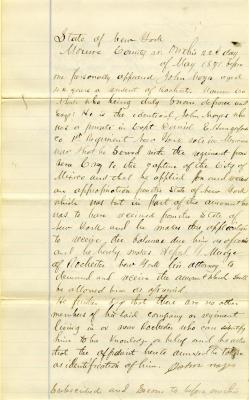 State of New York
Monroe County ss. On this 22d day
of May 1891 before
me personally appeared John Moyes aged
years a resident of Rochester Monroe Co.
who being duly sworn deposes and
says: He is the identical John Moyes who
was a private in Capt Daniel E. Hungerford
Co 1st Regiment New York vols in Mexican
War that he served with the regiment from
to the capture of the City of
Mexico and that he applied for and
an appropriation from the State of New York
which was but in part of the amount he
was to have received from the State of
New York and he makes this application
to receive the balance due him as aforesaid
and he hereby makes
of Rochester New York his attorney to
demand and receive the amount which shall
be allowed him as aforesaid.
He further says that there are no other
members of his said company or regiment
living in or near Rochester who can testify
him to his knowledge or belief and he asks
that the affidavit hereto annexed be taken
as identification of him. John Moyes
Subscribed and sworn to before me this